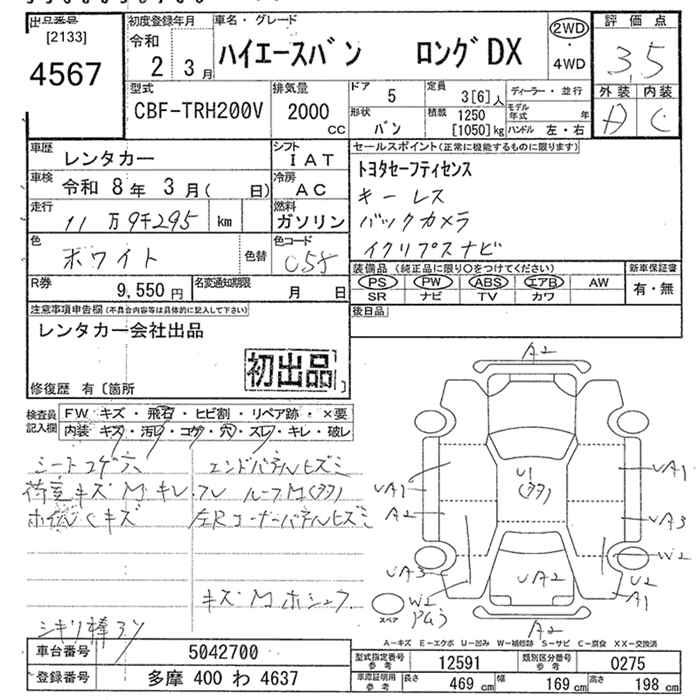 出品番号 初度登録年月 車名・グレード 評価点
[2133] 令和 2WD
4567 2 3月 ハイエースバン ロングDX ・ 3.5
4WD
型式 排気量 ドア 5 定員 3[6]人 ディーラー・並行 外装 内装
CBF-TRH200V 2000 cc 形状 バン 積載 1250 [1050]kg モデル年式 年 A C
ハンドル 左・右
車歴 レンタカー シフト IAT セールスポイント(正常に機能するものに限ります)
車検 令和 8年 3月( 日) 冷房 AC トヨタセーフティセンス
走行 11万9千295 km 燃料 ガソリン キーレス
バックカメラ
色 ホワイト 色替 色コード 058 イクリプスナビ
R券 9,550円 名変通知期限 月 日 装備品(純正品に限り○をつけてください) 新車保証書
PS PW ABS エアB AW 有・無
SR ナビ TV カワ
注意事項申告欄(不具合内容等は具体的に記入して下さい) 後日品
レンタカー会社出品
初出品
修復歴 有〔箇所
検査員記入欄 FW キズ・飛石・ヒビ割・リペア跡・×要
内装 キズ・汚レ・コゲ・穴・スレ・キレ・破レ
シートコゲ穴 エンドパネルヒズミ
荷室キズM・キレ・スレ ルーフM(タタ)
キズ 左Rコーナーパネルヒズミ
キズM
シキリ棒
A2
U1
(タタ)
UA1 UA1
A2 UA3
W2
UA3 UA2 U2
W2 A1
スペア
A2
A－キズ E－エクボ U－凹み W－補修跡 S－サビ C－腐食 XX－交換済
車台番号 5042700 型式指定番号 参考 12591 類別区分番号 参考 0275
登録番号 多摩 400 わ 4637 車庫証明用 参考 長さ 469 cm 幅 169 cm 高さ 198 cm